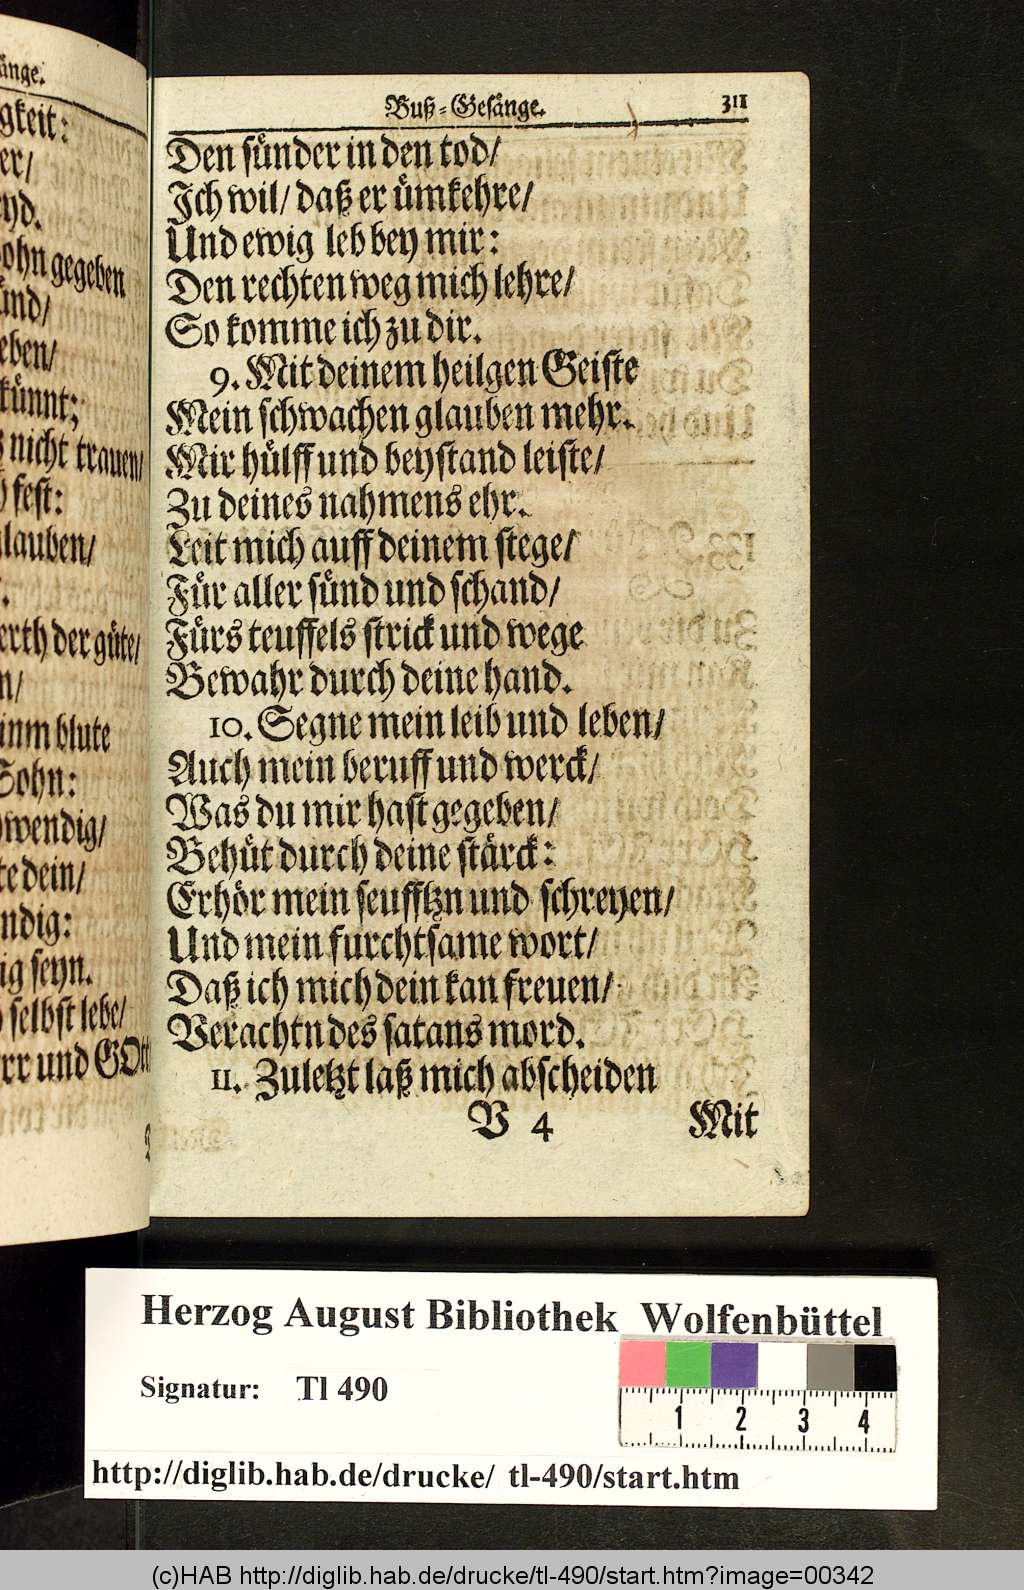 änge.
gkeit:
er/
eyd.
ohn gegeben
ünd/
eben/
künnt;
nicht trauen/
fest:
lauben/
erth der güte/
n/
inm blute
Sohn:
wendig/
te dein/
ndig:
ig seyn.
selbst lebe/
rr und GOtt
Buß-Gesänge. 311
Den sünder in den tod/
Ich wil/ daß er ümkehre/
Und ewig leb bey mir:
Den rechten weg mich lehre/
So komme ich zu dir.
9. Mit deinem heilgen Geiste
Mein schwachen glauben mehr.
Mir hülff und beystand leiste/
Zu deines nahmens ehr.
Leit mich auff deinem stege/
Für aller sünd und schand/
Fürs teuffels strick und wege
Bewahr durch deine hand.
10. Segne mein leib und leben/
Auch mein beruff und werck/
Was du mir hast gegeben/
Behüt durch deine stärck:
Erhör mein seufftzn und schreyen/
Und mein furchtsame wort/
Daß ich mich dein kan freuen/
Verachtn des satans mord.
11. Zuletzt laß mich abscheiden
V 4 Mit
Herzog August Bibliothek Wolfenbüttel
Signatur: Tl 490
1 2 3 4
http://diglib.hab.de/drucke/ tl-490/start.htm
(c)HAB http://diglib.hab.de/drucke/tl-490/start.htm?image=00342